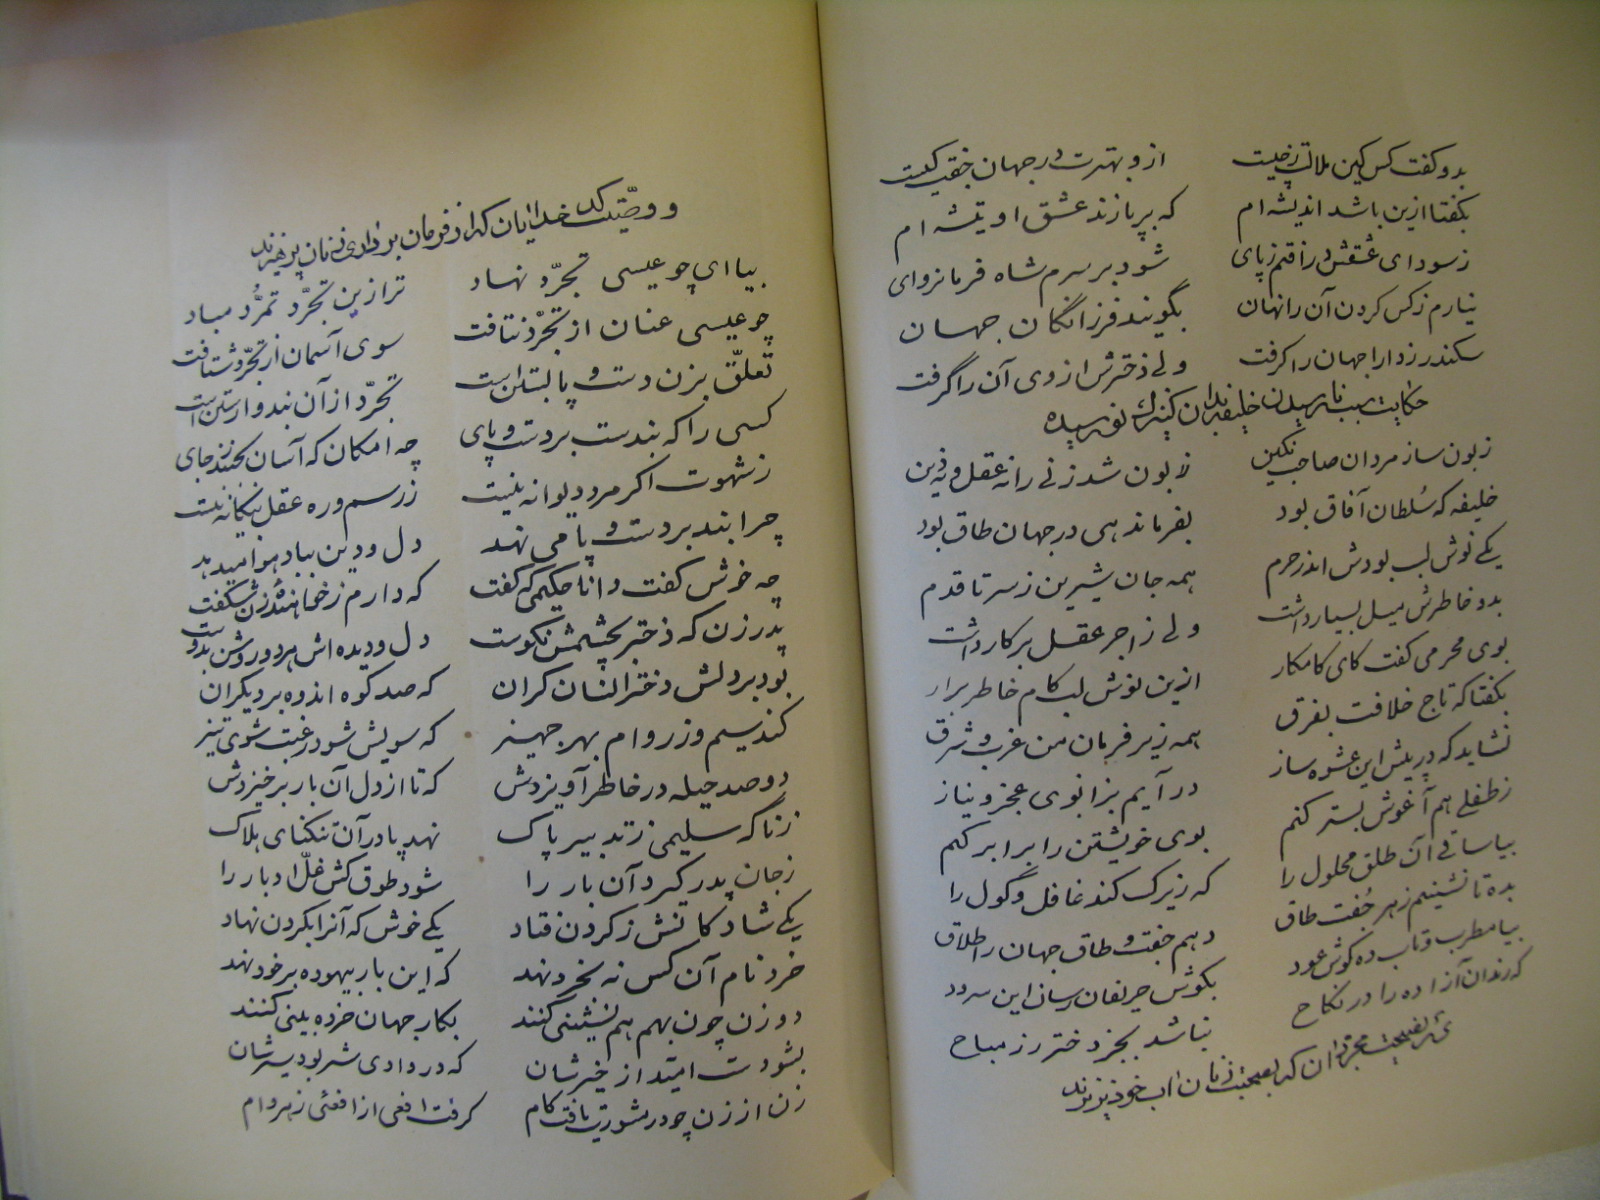 بدو گفت کس کین ملالت ز چیست از و بهترت در جهان جفت کیست
بگفتا ازین باشد اندیشه ام که بر پا زند عشق او تیشه ام
ز سودای عشقش در افتم ز پای شود بر سرم شاه فرمانروای
نیارم ز کس کردن آن را نهان بگویند فرزانگان جهان
سکندر ز دارا جهان را گرفت ولی دخترش از وی آن را گرفت
حکایت نارسیدن خلیفه بدان کنیزک نورسیده
زبون ساز مردان صاحب نگین زبون شد زنی را نه عقل و نه دین
خلیفه که سُلطان آفاق بود بفرماندهی در جهان طاق بود
یکی نوش لب بودش اندر حرم همه جان شیرین ز سر تا قدم
بدو خاطرش میل بسیار داشت ولی زاجر عقل بر کار داشت
بوی محرمی گفت کای کامکار ازین نوش لب کام خاطر برار
بگفتا که تاج خلافت بفرق همه زیر فرمان من غرب و شرق
نشاید که در پیش این عشوه ساز در آیم بزانوی عجز و نیاز
ز طفلی هم آغوش بستر کنم بوی خویشتن را برابر کنم
بیا ساقی آن طلق محلول را که زیرک کند غافل و گول را
بده تا نشینیم ز هر جُفت طاق دهیم جفت و طاق جهان را طلاق
بیا مطرب و تاب ده گوش عود بگوش حریفان رسان این سرود
که رندان آزاده را در نکاح نباشد بجز دختر رز مباح
نصیحت مجردان که بصحبت زنان
و وصیّت کدخدایان که از فرمان برداری زنان بپرهیزند
بیا ای چو عیسی تجرّد نهاد ترا زین تجرّد تمرُّد مباد
چو عیسی عنان از تجرّد نتافت سوی آسمان از تجرّد شتافت
تعلّق بزن دست و پا بستن است تجرّد از آن بند وارستن است
کسی را که بندست بر دست و پای چه امکان که آسان بجنبد ز جای
ز شهوت اگر مرد دیوانه نیست ز رسم و ره عقل بیگانه نیست
چرا بند بر دست و پا می نهد دل و دین بباد هوا میدهد
چه خوش گفت دانا حکیمی که گفت که دارم ز خواهندهٔ زن شگفت
پدر زن که دختر بچشمش نکوست دل و دیده اش هر دو روشن بدوست
بود بر دلش دختر انسان گران که صد کوه اندوه بر دیگران
کند سیم و زر وام بهر جهیز که سویش شود رغبت شوی تیز
دو صد حیله در خاطر آویزدش که تا از دل آن بار بر خیزدش
ز ناگه سلیمی ز تدبیر پاک نهد پا در آن تنگنای هلاک
ز جان پدر گیرد آن بار را شود طوق کش غلّ ادبار را
یکی شاد کانش ز گردن فتاد یکی خوش که آنرا بگردن نهاد
خرد نام آن کس نه بخرد نهد که این بار بیهوده بر خود نهد
دو زن چون بهم هم نشینی کنند بکار جهان خرده بینی کنند
بشو دست امیّد از خیرشان که در وادی شر بود سیرشان
زن از زن چو در مشورت یافت کام گرفت افعی از افعئی زهر وام